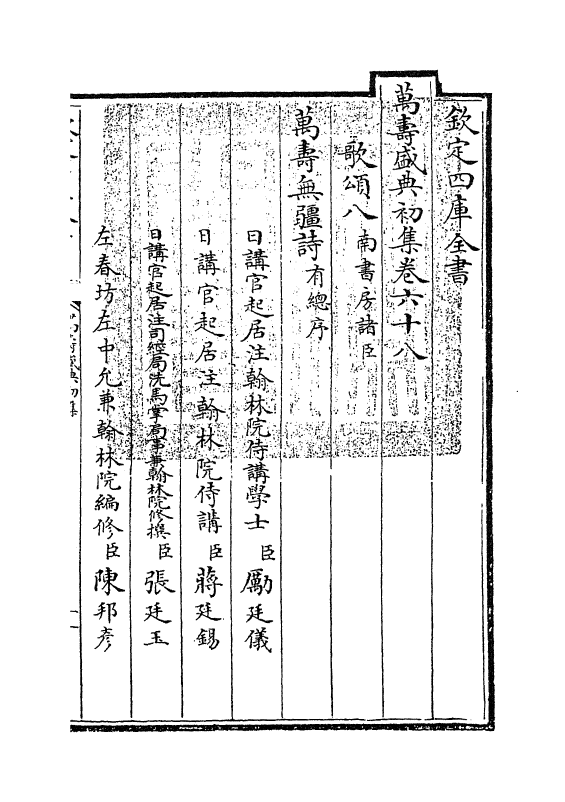 欽定四庫全書
萬壽盛典初集卷六十八
歌頌八 南書房諸臣
萬壽無疆詩 有總序
日講官起居注翰林院侍講學士 臣 勵廷儀
日講官起居注翰林院侍講 臣 蔣廷錫
日講官起居注司經局洗馬掌局事兼翰林院修撰 臣 張廷玉
左春坊左中允兼翰林院編修 臣 陳邦彥